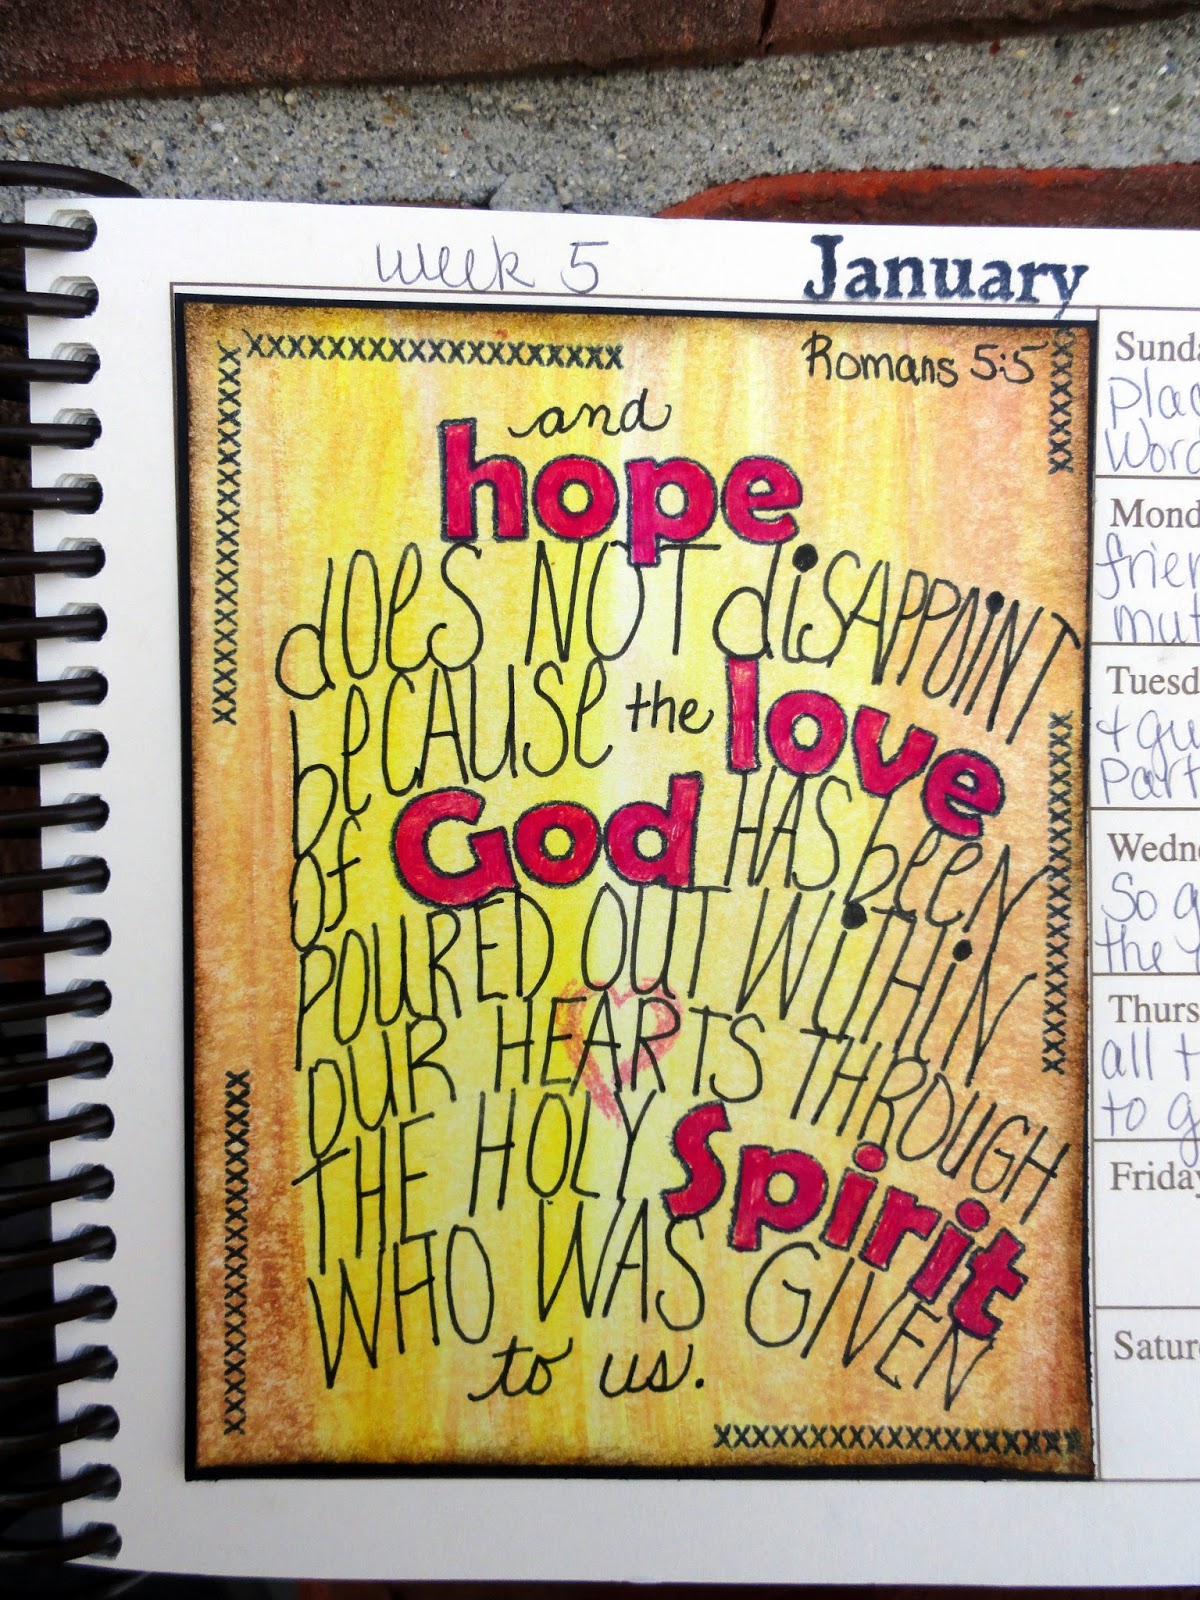 week 5
January
xxxxxxxxxxxxxxxxxxx
Romans 5:5
and
hope
does NOT disAPPOiNT
beCAUSe the love
of God HAS been
POURED OUT WiTHiN
OUR HEARTS THROUGH
THE HOLY Spirit
WHO WAS GIVEN
to us.
Sunda
Word
Mond
frien
mut
Tuesd
Part
Wedne
So g
the
Thurs
all t
to g
Friday
Satur